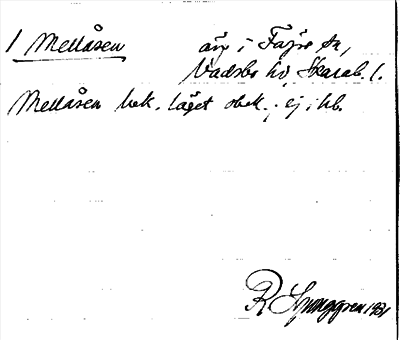 1 Mellåsen äng i Fägre sn,
Vadsbo hd, Skarab. l.
Mellåsen bek. läget obek.; ej i hb.
R Ljunggren 1931